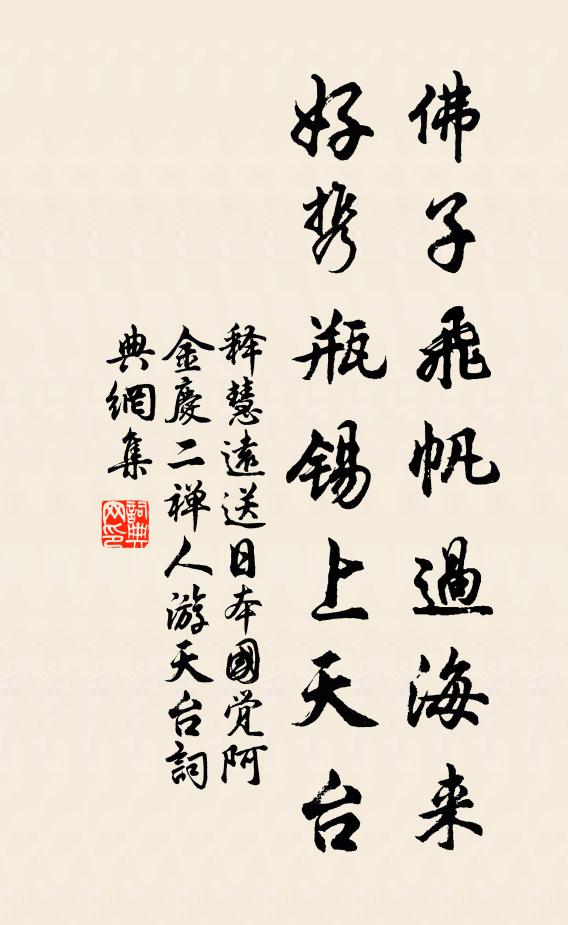 佛子飛帆過海来
好携瓶錫上天台
释慧遠送日本國覚阿
金慶二禅人游天台詞
典網集
詞典网印